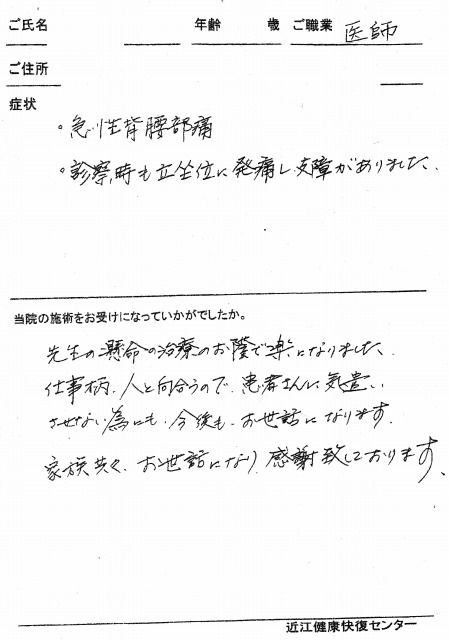 ご氏名 年齢 歳 ご職業 医師
ご住所
症状
・急性背腰部痛
・診察時も立坐位に発痛し支障がありました、
当院の施術をお受けになっていかがでしたか。
先生の懸命の治療のお陰で楽になりました、
仕事柄、人と向合うので、患者さんに気遣い
させない為にも、今後も、お世話になります、
家族共々、お世話になり、感謝致しております、
近江健康快復センター